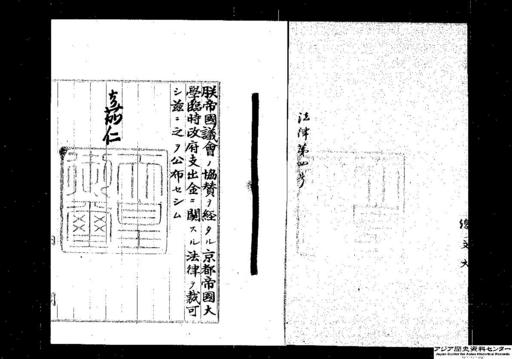 法律第四号
朕帝國議會ノ協賛ヲ経タル京都帝國大
學臨時政府支出金ニ關スル法律ヲ裁可
シ茲ニ之ヲ公布セシム
嘉仁
アジア歴史資料センター
Japan Center for Asian Historical Records